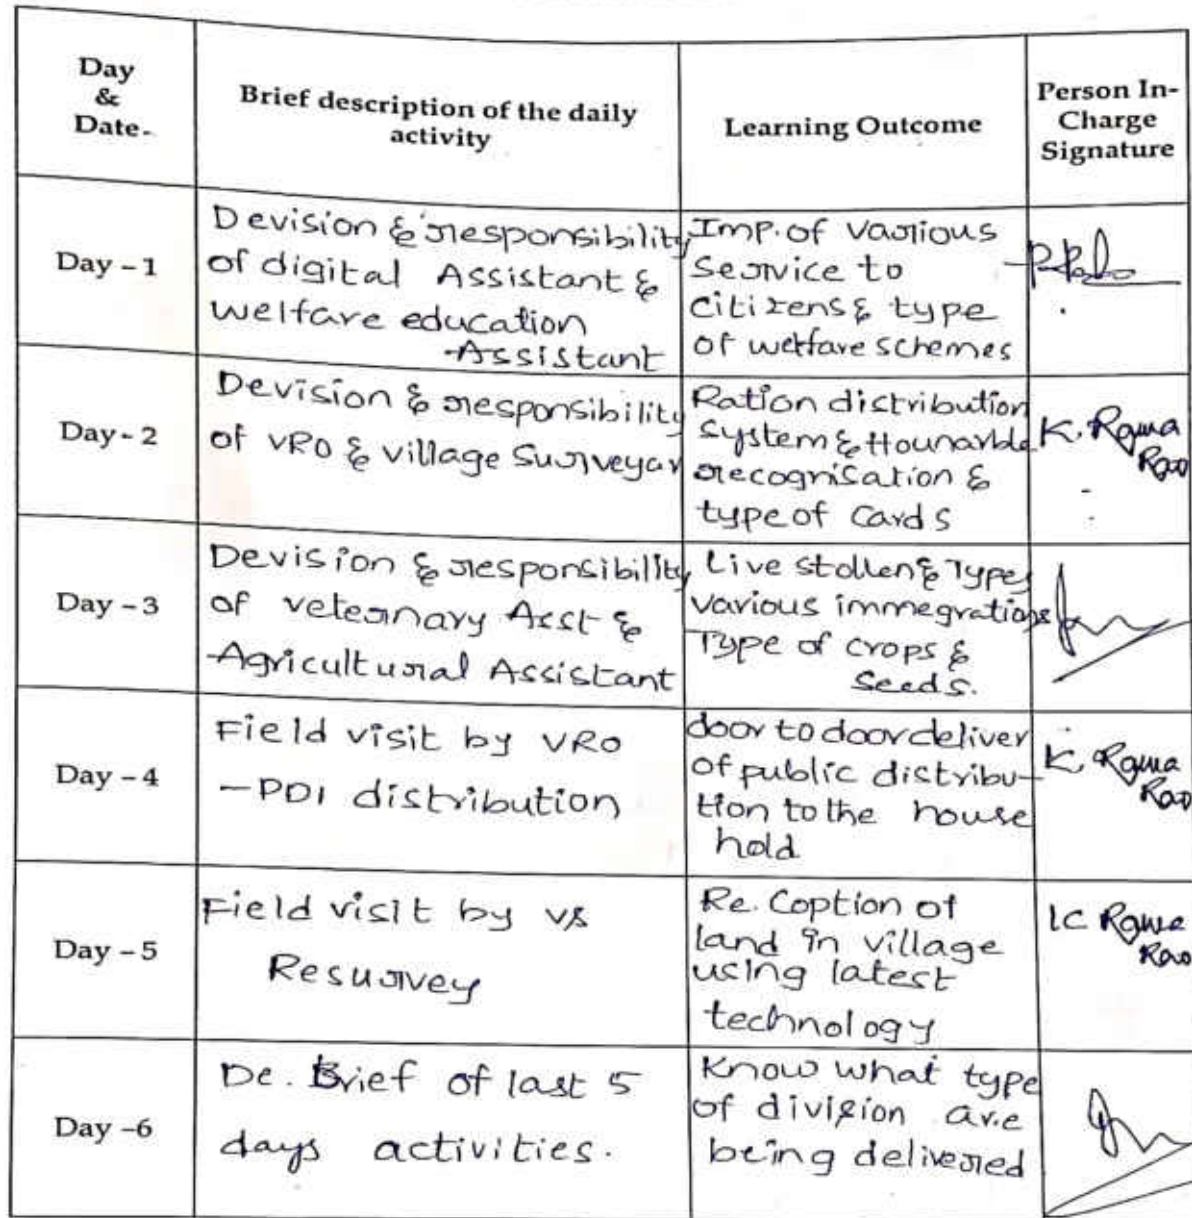 Day
&
Date.
Brief description of the daily
activity
Learning Outcome
Person In-
Charge
Signature
Day - 1
Devision & responsibility
of digital Assistant &
welfare education
Assistant
Imp. of various
service to
citizens & type
of welfare schemes
Day - 2
Devision & responsibility
of VRO & village Surveyar
Ration distribution
system & Hounarble
recognisation &
type of Cards
K. Rama
Rao
Day - 3
Devision & responsibility
of veternary Asst &
Agricultural Assistant
Live stollen & Types
various immegrations
Type of crops &
Seeds.
Day - 4
Field visit by VRO
- PDI distribution
door to door deliver
of public distribu-
tion to the house
hold
K. Rama
Rao
Day - 5
Field visit by VS
Resurvey
Re. Coption of
land in village
using latest
technology
K Rama
Rao
Day -6
De. Brief of last 5
days activities.
Know what type
of division are
being delivered